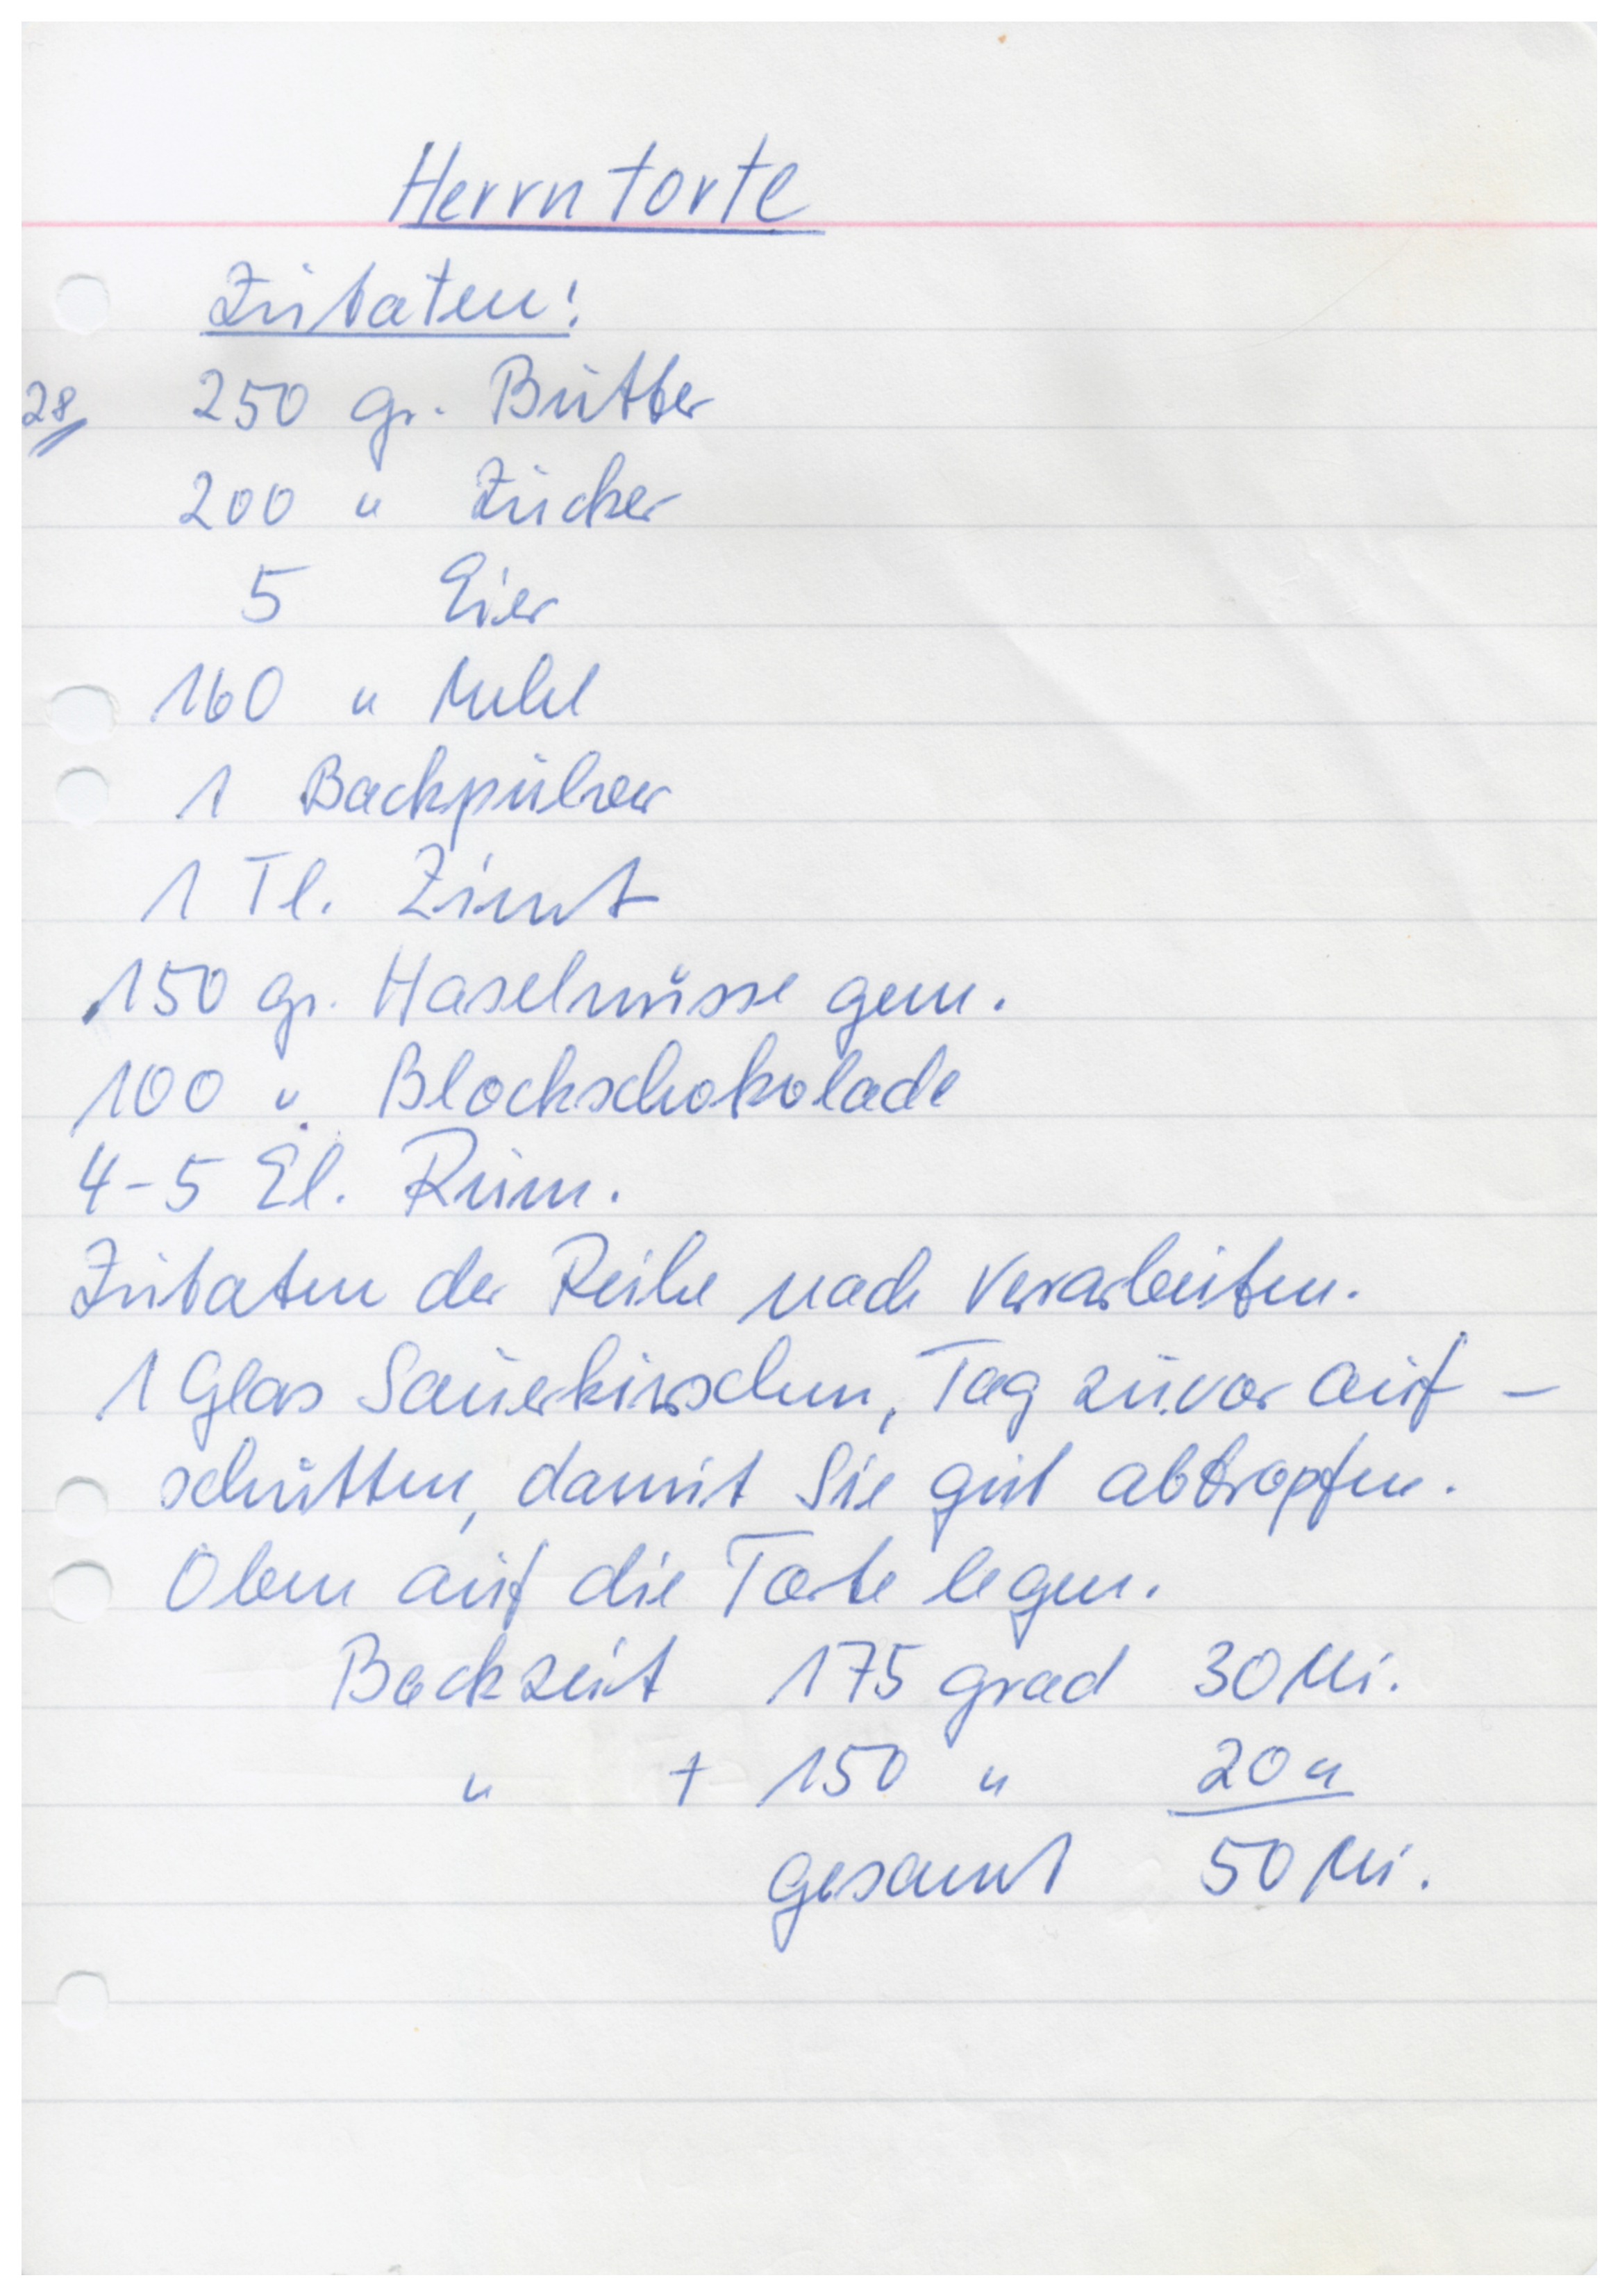 Herrntorte
Zutaten:
28 250 gr. Butter
200 " Zucker
5 Eier
160 " Mehl
1 Backpulver
1 Tl. Zimt
150 gr. Haselnüsse gem.
100 " Blockschokolade
4-5 El. Rum.
Zutaten der Reihe nach verarbeiten.
1 Glas Sauerkirschen, Tag zuvor auf-
schütten, damit Sie gut abtropfen.
Oben auf die Torte legen.
Backzeit 175 grad 30 Mi.
" + 150 " 20 "
gesamt 50 Mi.